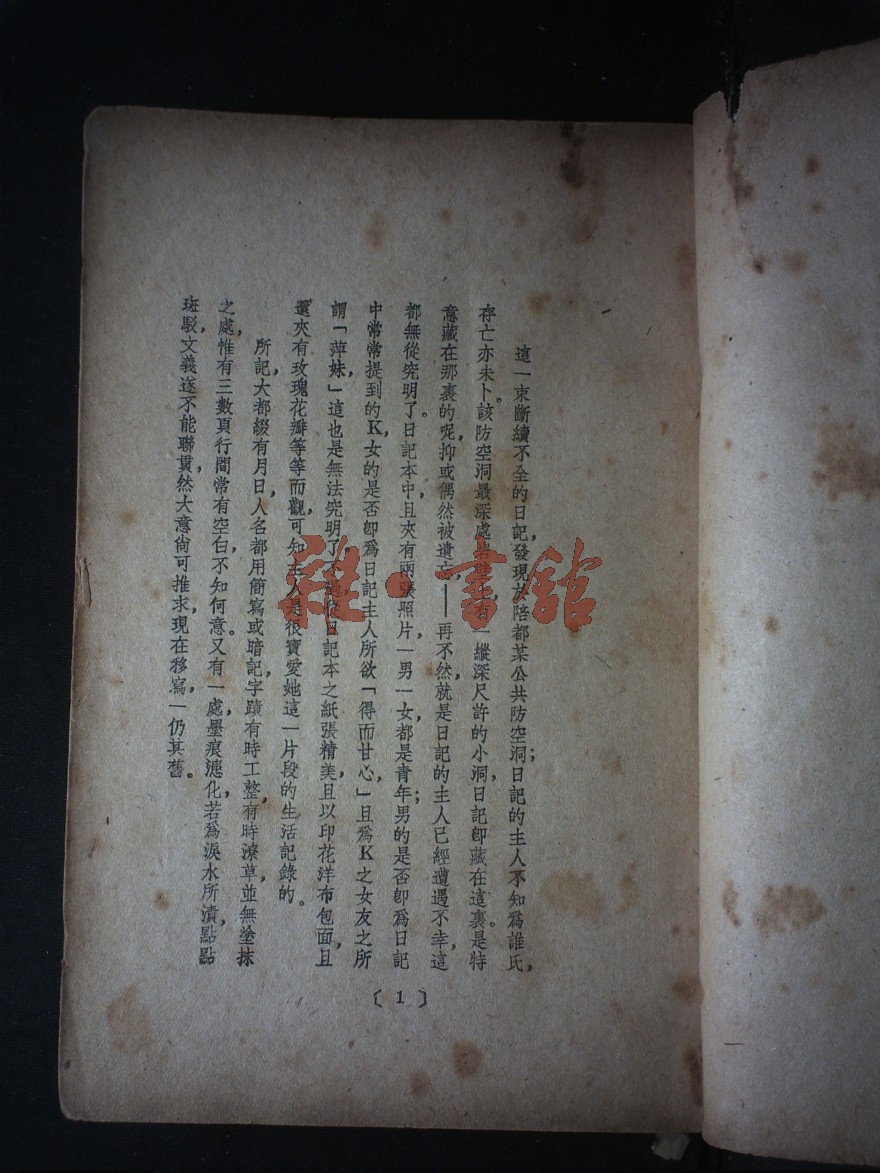 這一束斷續不全的日記,發現於陪都某公共防空洞;日記的主人不知爲誰氏,
存亡亦未卜。該防空洞最深處岩壁上有一縱深尺許的小洞,日記卽藏在這裏。是特
意藏在那裏的呢,抑或偶然被遺忘,——再不然,就是日記的主人已經遭遇不幸,這
都無從究明了。日記本中,且夾有兩張照片,一男一女,都是青年;男的是否卽爲日記
中常常提到的K,女的是否卽爲日記主人所欲「得而甘心,」且爲K之女友之所
謂「萍妹,」這也是無法究明了。不過從日記本之紙張精美,且以印花洋布包面,且
還夾有玫瑰花瓣等等而觀,可知主人是很寶愛她這一片段的生活記錄的。
所記大都綴有月日,人名都用簡寫或暗記,字蹟有時工整,有時潦草,並無塗抹
之處,惟有三數頁行間常有空白,不知何意。又有一處,墨痕漶化,若爲淚水所漬,點點
斑駁,文義遂不能聯貫,然大意尙可推求,現在移寫,一仍其舊。
〔1〕
雜·書館